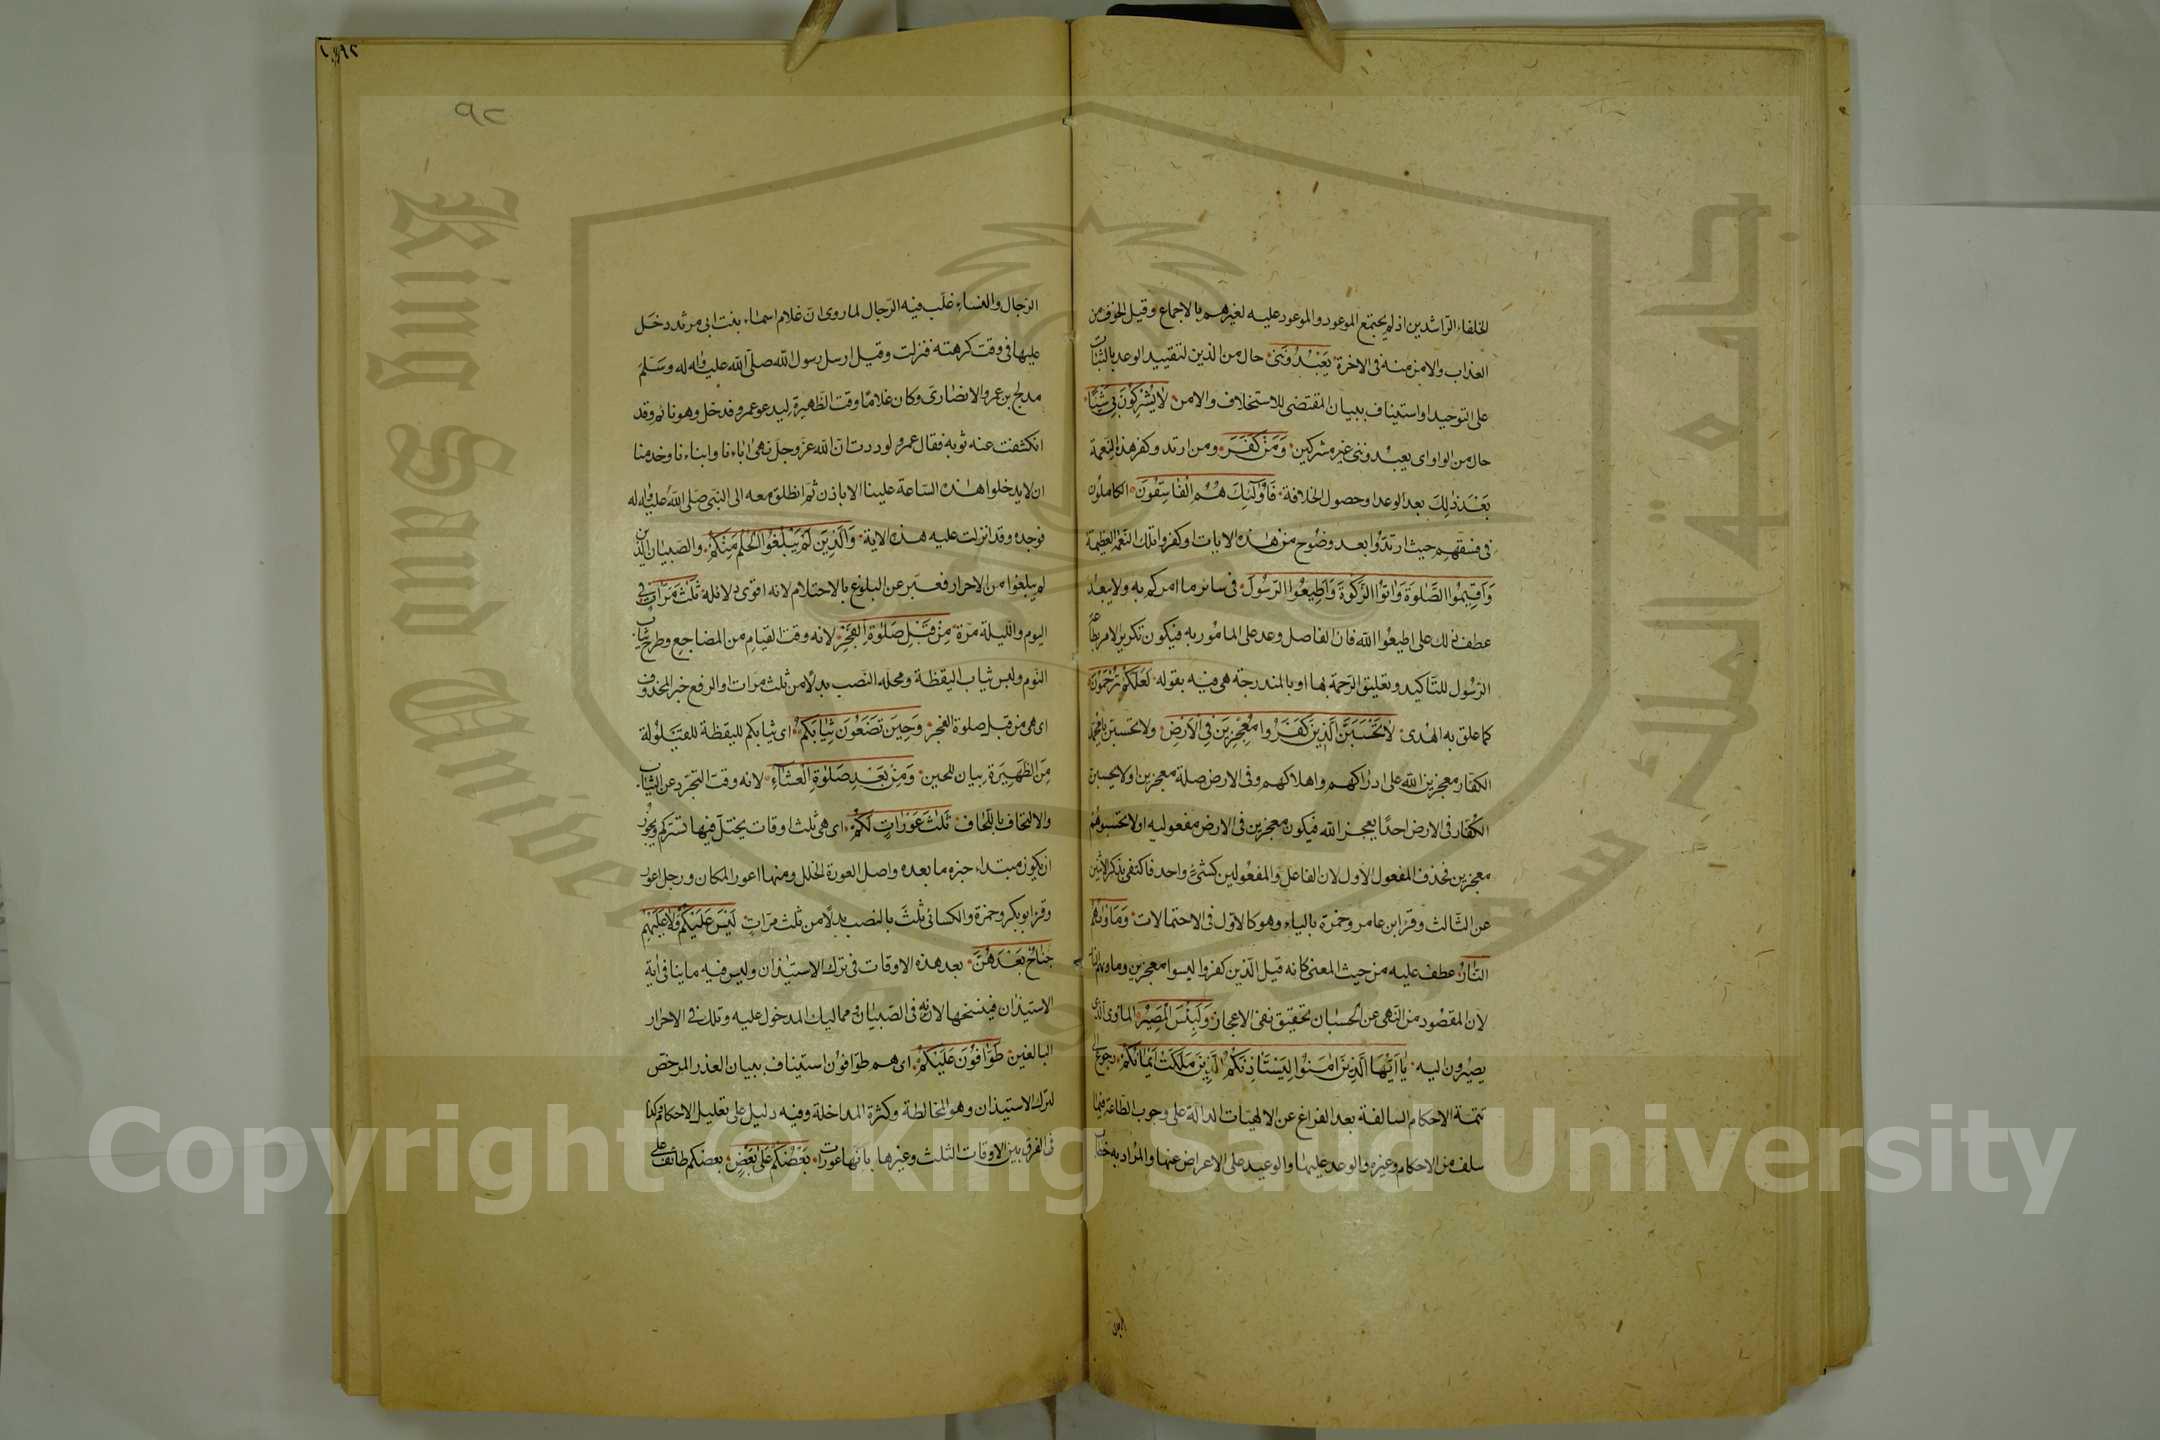 الخلفاء الراشدين اذ لم يجتمع الموعود والموعود عليه لغيرهم بالاجماع وقيل الخوف من
العذاب والامن منه فى الاخرة يَعْبُدُونَنى حال من الذين لتقييد الوعد بالثبات
على التوحيد او استيناف ببيان المقتضى للاستخلاف والامن لا يُشْرِكُونَ بى شَيْئًا
حال من الواو اى يعبدوننى غير مشركين وَمَنْ كَفَرَ ومن ارتد وكفر هذه النعمة
بَعْدَ ذٰلِكَ بعد الوعد او حصول الخلافة فَاُولٰئِكَ هُمُ الْفَاسِقُونَ الكاملون
فى فسقهم حيث ارتدوا بعد وضوح مثل هذه الايات او كفروا تلك النعمة العظيمة
وَاَقِيمُوا الصَّلٰوةَ وَاٰتُوا الزَّكٰوةَ وَاَطِيعُوا الرَّسُولَ فى سائر ما امركم به ولا يبعد
عطف ذلك على اطيعوا الله فان الفاصل وعد على المامور به فيكون تكرير الامر بطاعة
الرسول للتاكيد وتعليق الرحمة بها او بالمندرجة هى فيه بقوله لَعَلَّكُمْ تُرْحَمُونَ
كما علق به الهدى لا تَحْسَبَنَّ الَّذِينَ كَفَرُوا مُعْجِزِينَ فِى الْاَرْضِ ولا تحسبن يا محمد
الكفار معجزين الله على ادراكهم واهلاكهم وفى الارض صلة معجزين او لا يحسبن
الكفار فى الارض احدا يعجز الله فيكون معجزين فى الارض مفعوليه او لا تحسبوهم
معجزين فحذف المفعول الاول لان الفاعل والمفعولين كشئ واحد فاكتفى بذكر الاثنين
عن الثالث وقرا ابن عامر وحمزة بالياء وهو كالاول فى الاحتمالات وَمَاْوٰيهُمُ
النَّارُ عطف عليه من حيث المعنى كانه قيل الذين كفروا ليسوا معجزين وماويهم النار
لان المقصود من النهى عن الحسبان تحقيق نفى الاعجاز وَلَبِئْسَ الْمَصِيرُ الماوى الذى
يصيرون اليه يَا اَيُّهَا الَّذِينَ اٰمَنُوا لِيَسْتَاْذِنْكُمُ الَّذِينَ مَلَكَتْ اَيْمَانُكُمْ رجوع الى
تتمة الاحكام السالفة بعد الفراغ عن الالهيات الدالة على وجوب الطاعة فيما
سلف من الاحكام وغيره والوعد عليها والوعيد على الاعراض عنها والمراد به خطاب
الرجال
٩٢
٩٢
الرجال والنساء غلب فيه الرجال لما روى ان غلام اسماء بنت ابى مرثد دخل
عليها فى وقت كرهته فنزلت وقيل ارسل رسول الله صلى الله عليه واله وسلم
مدلج بن عمرو الانصارى وكان غلاما وقت الظهيرة ليدعو عمر فدخل وهو نائم وقد
انكشفت عنه ثوبه فقال عمر لوددت ان الله عز وجل نهى اباءنا وابناءنا وخدمنا
ان لا يدخلوا هذه الساعة علينا الا باذن ثم انطلق معه الى النبى صلى الله عليه واله
فوجده وقد انزلت عليه هذه الاية وَالَّذِينَ لَمْ يَبْلُغُوا الْحُلُمَ مِنْكُمْ والصبيان الذين
لم يبلغوا من الاحرار فعبر عن البلوغ بالاحتلام لانه اقوى دلائله ثَلٰثَ مَرَّاتٍ فى
اليوم والليلة مرة مِنْ قَبْلِ صَلٰوةِ الْفَجْرِ لانه وقت القيام من المضاجع وطرح ثياب
النوم ولبس ثياب اليقظة ومحله النصب بدلا من ثلث مرات او الرفع خبر المحذوف
اى هى من قبل صلوة الفجر وَحِينَ تَضَعُونَ ثِيَابَكُمْ اى ثيابكم لليقظة للقيلولة
مِنَ الظَّهِيرَةِ بيان للحين وَمِنْ بَعْدِ صَلٰوةِ الْعِشَاءِ لانه وقت التجرد عن الثياب
والالتحاف باللحاف ثَلٰثُ عَوْرَاتٍ لَكُمْ اى هى ثلث اوقات يختل فيها تستركم ويجوز
ان يكون مبتداء خبره ما بعده واصل العورة الخلل ومنها اعور المكان ورجل اعور
وقرا ابو بكر وحمزة والكسائى ثلثَ بالنصب بدلا من ثلث مرات لَيْسَ عَلَيْكُمْ وَلَا عَلَيْهِمْ
جُنَاحٌ بَعْدَهُنَّ بعد هذه الاوقات فى ترك الاستيذان وليس فيه ما ينافى اية
الاستيذان فينسخها لانه فى الصبيان ومماليك المدخول عليه وتلك فى الاحرار
البالغين طَوَّافُونَ عَلَيْكُمْ اى هم طوافون استيناف ببيان العذر المرخص
لترك الاستيذان وهو المخالطة وكثرة المداخلة وفيه دليل على تعليل الاحكام وكذا
فى الفرق بين الاوقات الثلث وغيرها بانها عورات بَعْضُكُمْ عَلٰى بَعْضٍ بعضكم طائف على
King Saud University
جامعة الملك سعود
Copyright © King Saud University